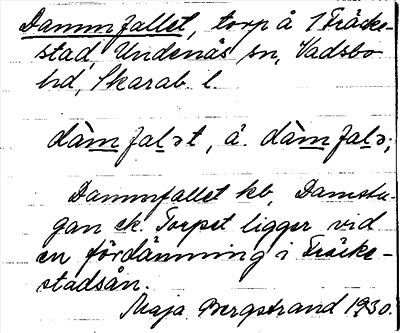 Dammfallet, torp å 1 Fräcke-
stad, Undenäs sn, Vadsbo
hd, Skarab. l.
dàmfalət, å. dàmfalə;
Dammfallet kb, Damstu-
gan ek. Torpet ligger vid
en fördämning i Fräcke-
stadsån.
Maja Bergstrand 1930.